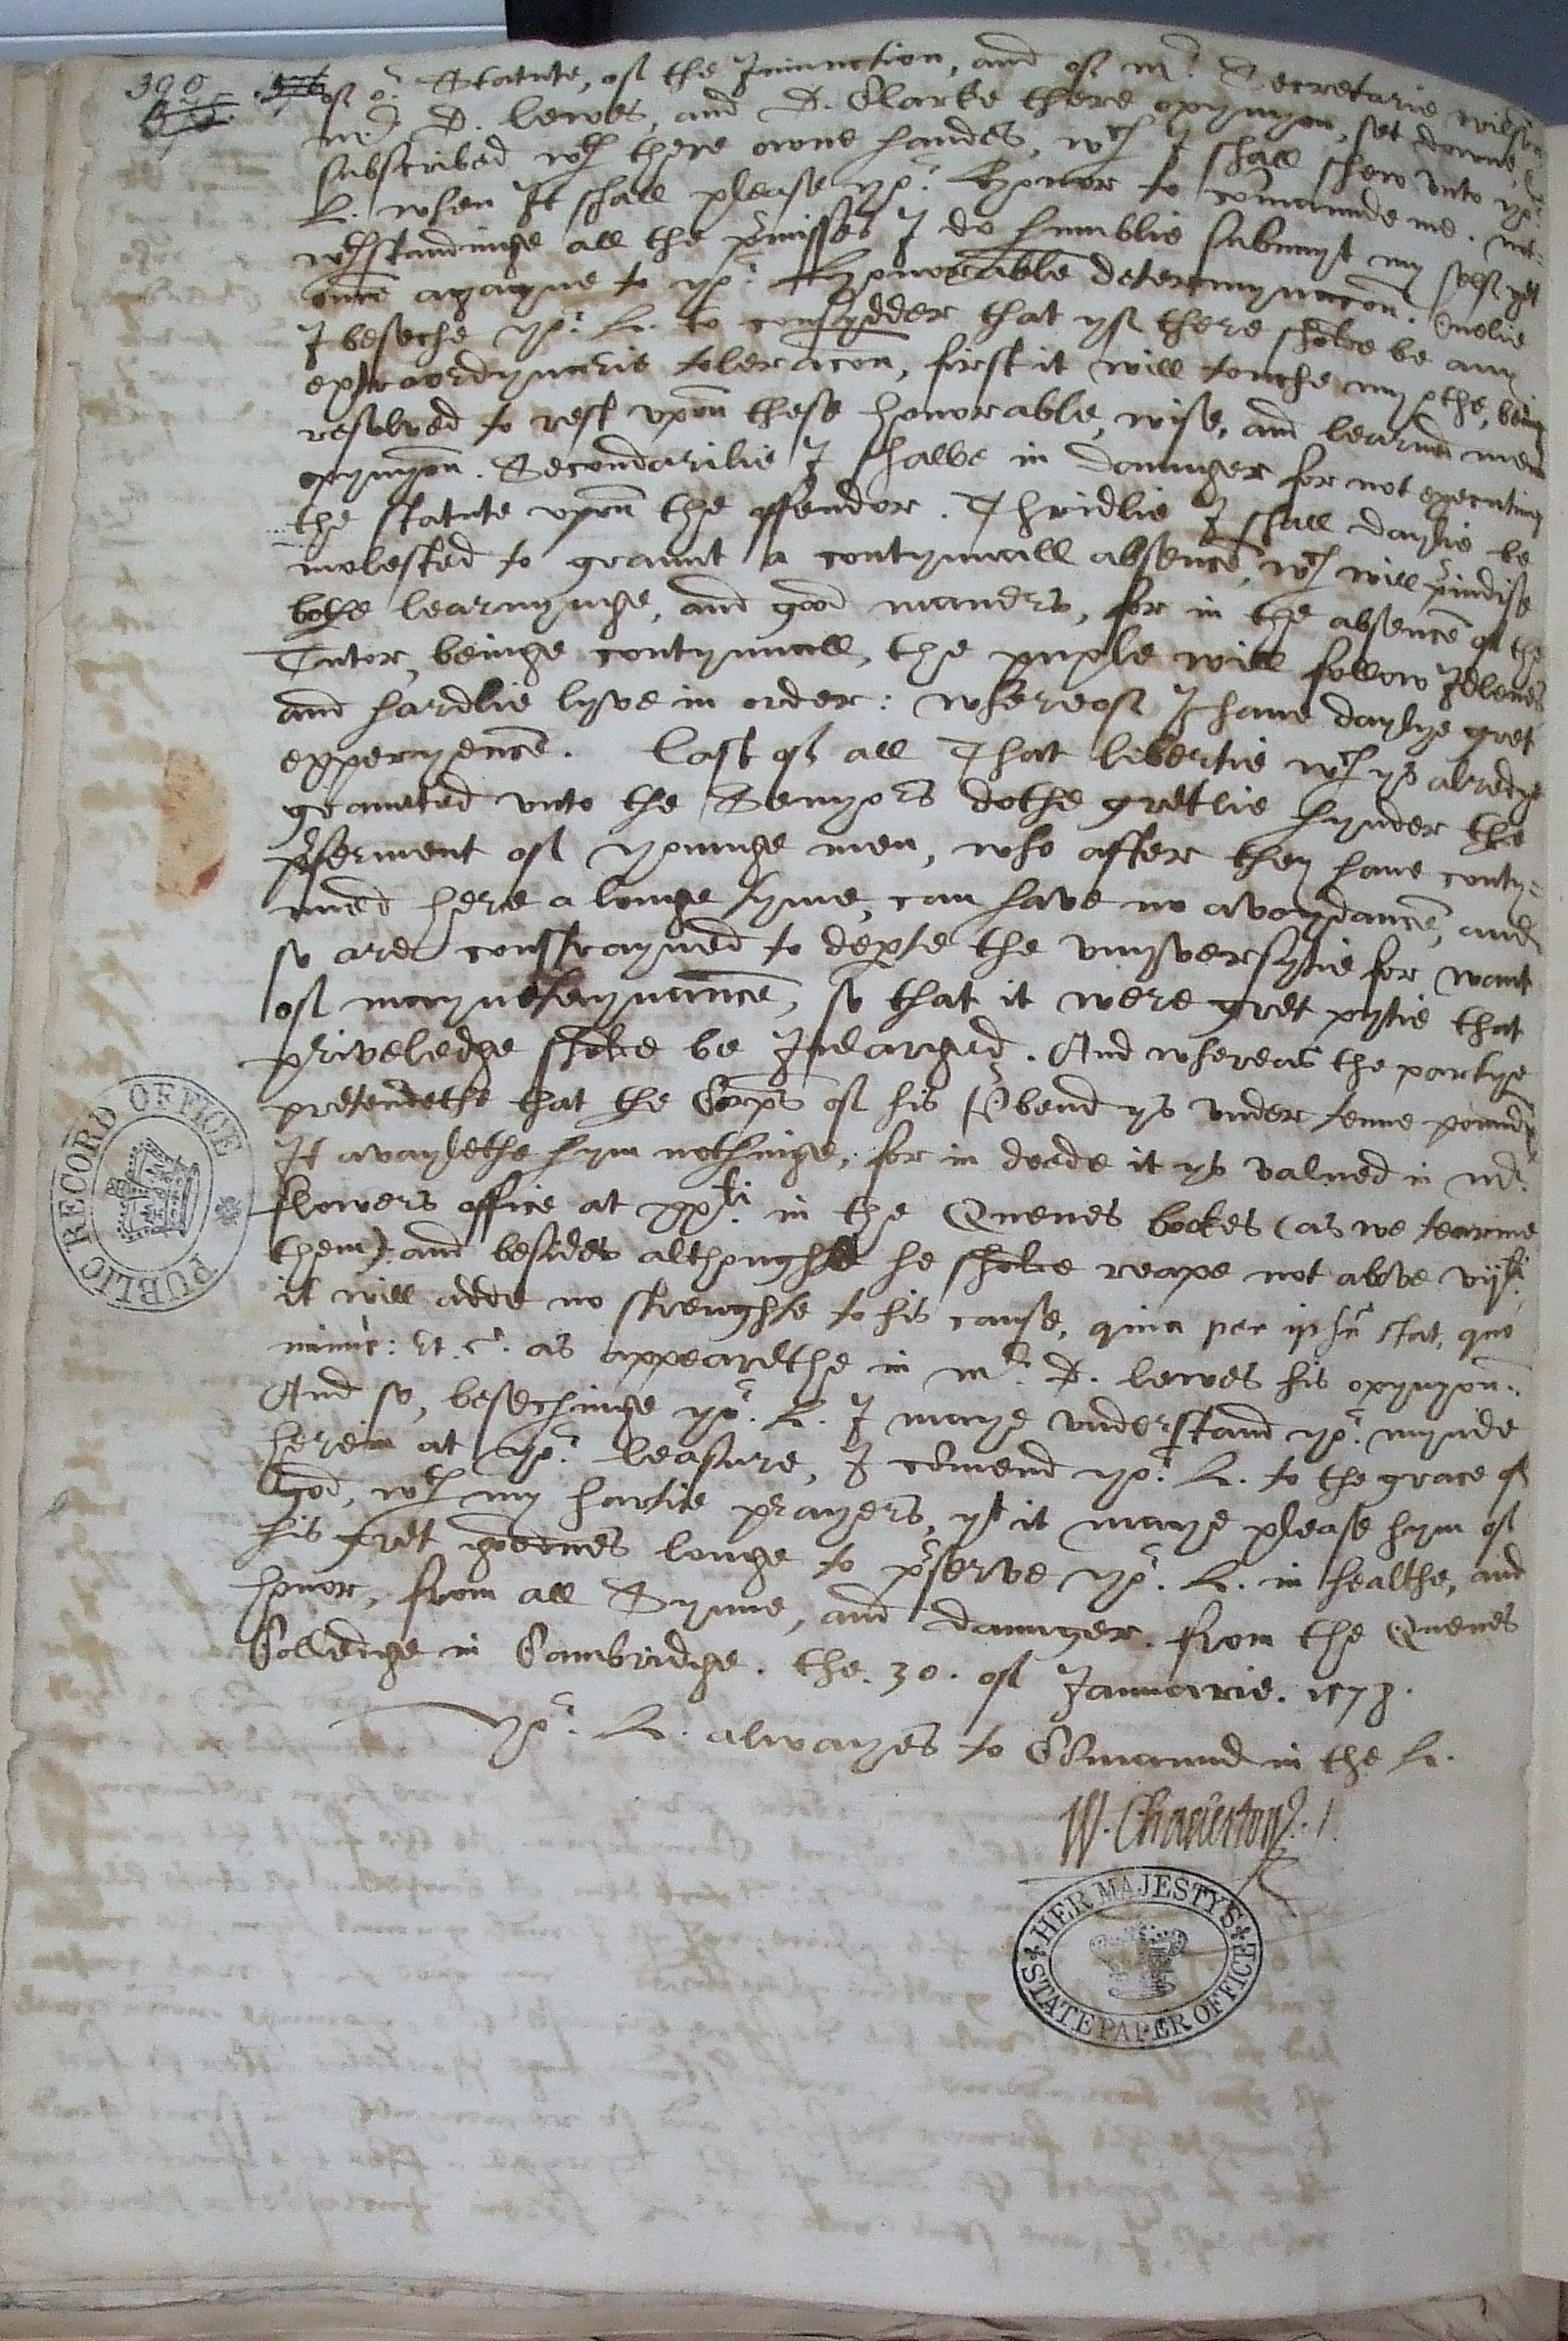 390
of oʳ Statute, of the Iniunction, and of mʳ Secretarie wilson
mʳ D. lewes, and D. Clarke there opynyon, set downe, &
subscribed wᵗʰ there owne handes, wᶜʰ I shall shew vnto yoʳ
L. when It shall please yoʳ Honor to comaunde me. not-
wᵗʰstandinge all the pʳmisses I do humblie submyt my self yet
once agayne to yoʳ Honorable determynacon. Onelie
I beseche yoʳ L. to consydder that yf there sholde be any
extraordynarie toleracon, first it will touche my othe, being
resolved to rest vpon these honorable, wise, and learned mens
opynyon. Secondarilie I shalbe in daunger for not executing
the statute vpon the offendor. Thridlie I shall daylie be
molested to graunt a contynuall absence, wᶜʰ will pʳiudise
bothe learnynge, and good maners, for in the absence of the
Tutor, beinge contynuall, the puple will follow Idlenes
and hardlie lyve in order: whereof I have daylye gret
experyence. Last of all That libertie wᶜʰ ys alredye
graunted vnto the Senyors dothe gretlie hynder the
pʳferment of younge men, who after they have conty=
nued here a longe tyme, can have no avoydance, and
so are constrayned to depte the vnyversytie for want
of mayneteynaunce, so that it were gret pytie that
priveledge sholde be Inlarged. And whereas the partye
pretendethe that the Corps of his Pʳbend ys vnder tenne pounds
It avaylethe hym nothinge, for in deede it ys valued in mʳ
flowers office at xxˡⁱ. in the Quenes bookes (as we tearme
them) and besides althoughe he sholde reape not above viiˡⁱ.
it will adde no strenghte to his cause, quia per ipsū stat, quo
minus: &t. cᵃ. as appearethe in mʳ. D. lewes his opynyon.
And so, besechinge yoʳ. L. I maye vnderstand yoʳ. mynde
herein at yoʳ. leasure, I comend yoʳ. L. to the grace of
god, wᵗʰ my hartie prayers, yᵗ it maye please hym of
his gret goodnes longe to pʳserve yoʳ. L. in healthe, and
honor, from all Synne, and daunger. from the Quenes
Colledge in Cambridge. the. 30. of Januarie. 1578.
Yoʳ. L. alwayes to Comaund in the L.
W. Chaderton
PUBLIC RECORD OFFICE
HER MAJESTY'S STATE PAPER OFFICE